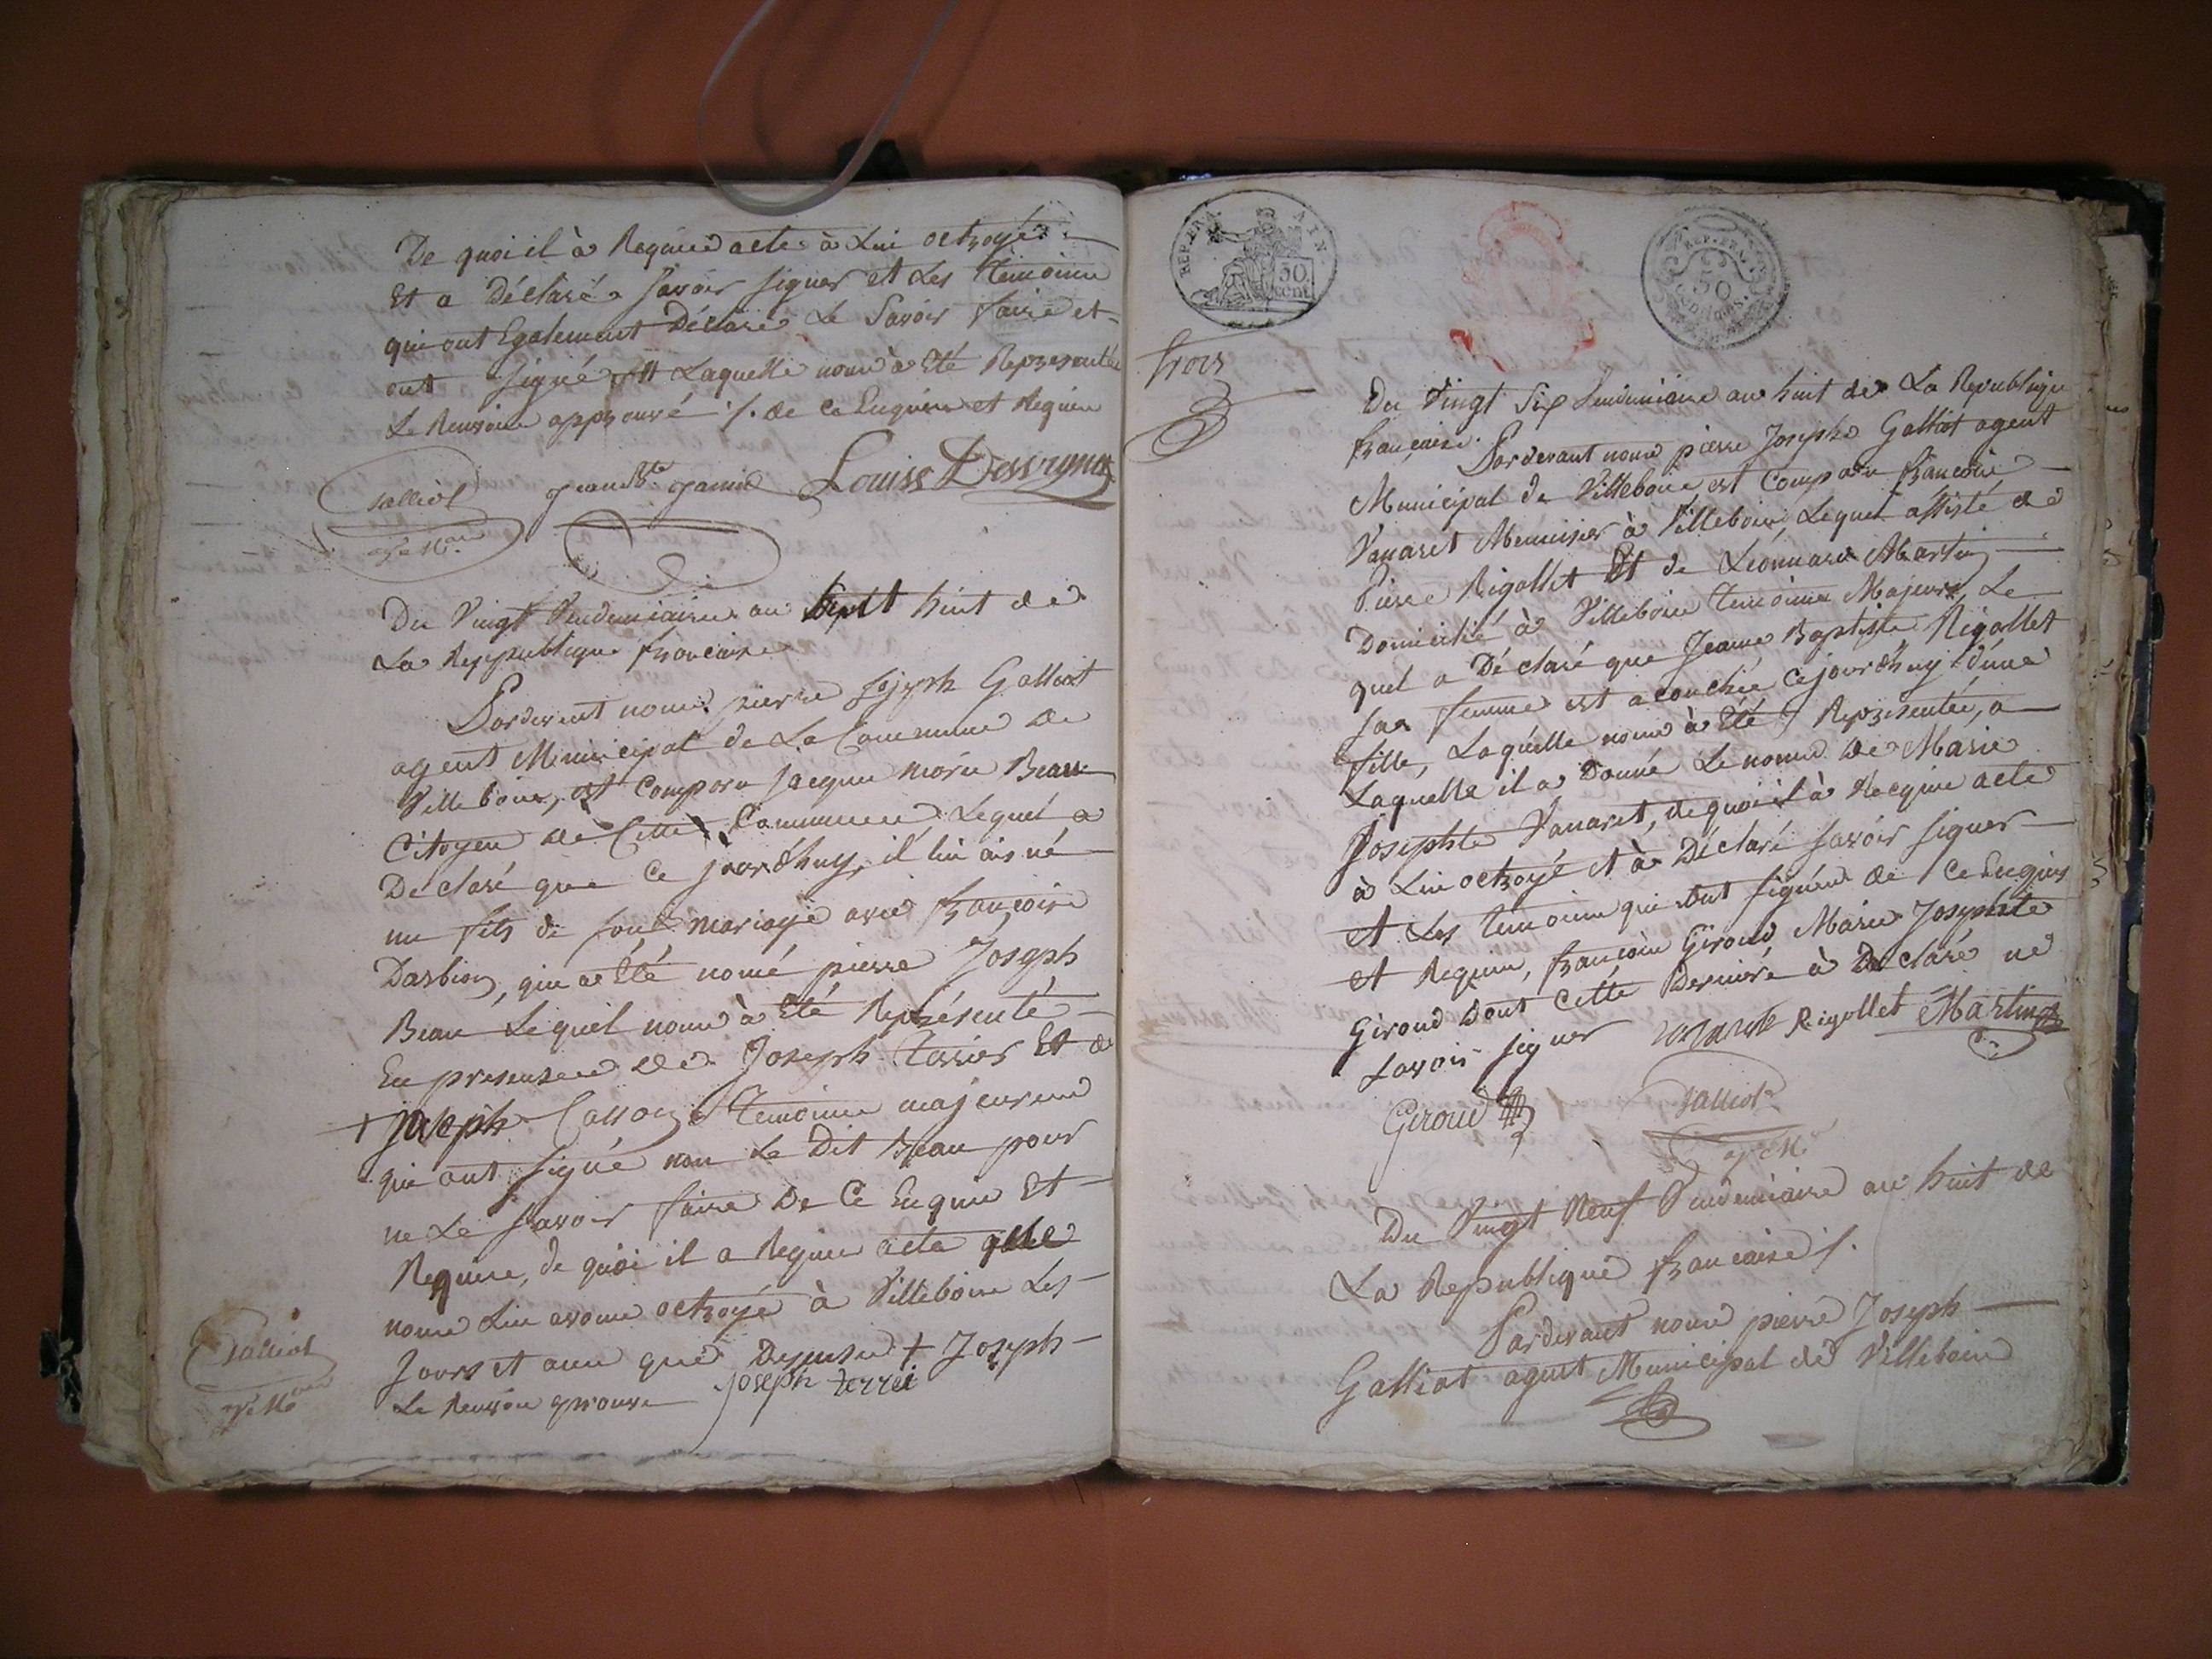 De quoi il à Requis acte à Lui octroyé
Et a Déclaré Savoir signer et Les Temoins
qui ont Egalement Déclaré Le Savoir faire et
ont signé Laquelle nous à Eté Representée
Le Renvoie approuvé /. de ce Enquis et Requis
Galliot
jean Bte janin
Louise
Du Vingt Vendemiaire an huit de
La Reppublique francaise
Pardevent nous pierre Jojeph Galliot
agent Municipal de La Commune de
Villeboi, est Comparu Jacque marie Beau
Citoyen de Cette Commune Lequel a
Declaré que Ce jourdhuy, il lui ais né
un fils de son mariage avec francoise
Darbion, qui a Eté nomé pierre Joseph
Beau Lequel nous à Eté Représenté
En presense de Joseph Et de
+ Joseph temoins majeurs
qui ont signé non Le Dit Beau pour
ne Le savoir faire De Ce Enquis Et
Requis, de quoi il a Requis acte
nous Lui avons octroyé à Villebois Les
Jours et ans que Dessus + Joseph
Le Renvoi aprouvé
joseph terrei
Galliot
REP. FRA.
A I N.
50
cent
REP. FRA.
50
trois
Du Vingt Six Vendemiaire an huit de La Republique
francaise.
Pardevant nous pierre Joseph Galliot agent
Municipal de Villebois est Comparu francois
Vanaret Menuisier à Villebois, Lequel assisté de
Pierre Rigollet Et de Leonnard Martin
Domicilié à Villebois temoins Majeurs, Le
quel a Déclaré que Jeanne Baptiste Rigollet
sa femme est acouchée Cejourdhuy d'une
fille, Laquelle nous à Eté Representée, a
Laquelle il a Donné Le nom de Marie
Josephte Vanaret, de quoi il à Recquis acte
à Lui octroyé et à Déclaré savoir signer
et Les temoins qui ont signés de Ce Enquis
et Requis, francois Giroud Marie Josephte
Giroud Dont Cette Derniere à Declaré ne
savoir signer
Rigollet
Martin
Giroud
Galliot
Du Vingt Neuf Vendemiaire an huit de
La Republique francaise /.
Pardevant nous pierre Joseph
Galliot agent Municipal de Villebois